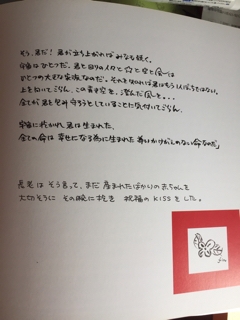 もう、君だ！君が立ち上がればみなも続く。
宇宙はひとつだ。君と回りの人々と☆と空と風は
ひとつの大きな家族なのだ。それを知れば君はもう1人ぼっちではない。
上を向いてごらん、この青き空を、澄んだ風を・・・
全てが君を見守ろうとしていることに気付いてごらん。
宇宙に抱かれ、君は生まれた、
全ての命は幸せになる為に生まれた尊いかけがえのない命なのだ」
長老はそう言って、まだ産まれたばかりの赤ちゃんを
大切そうにその腕に抱き 祝福のKISSをした。